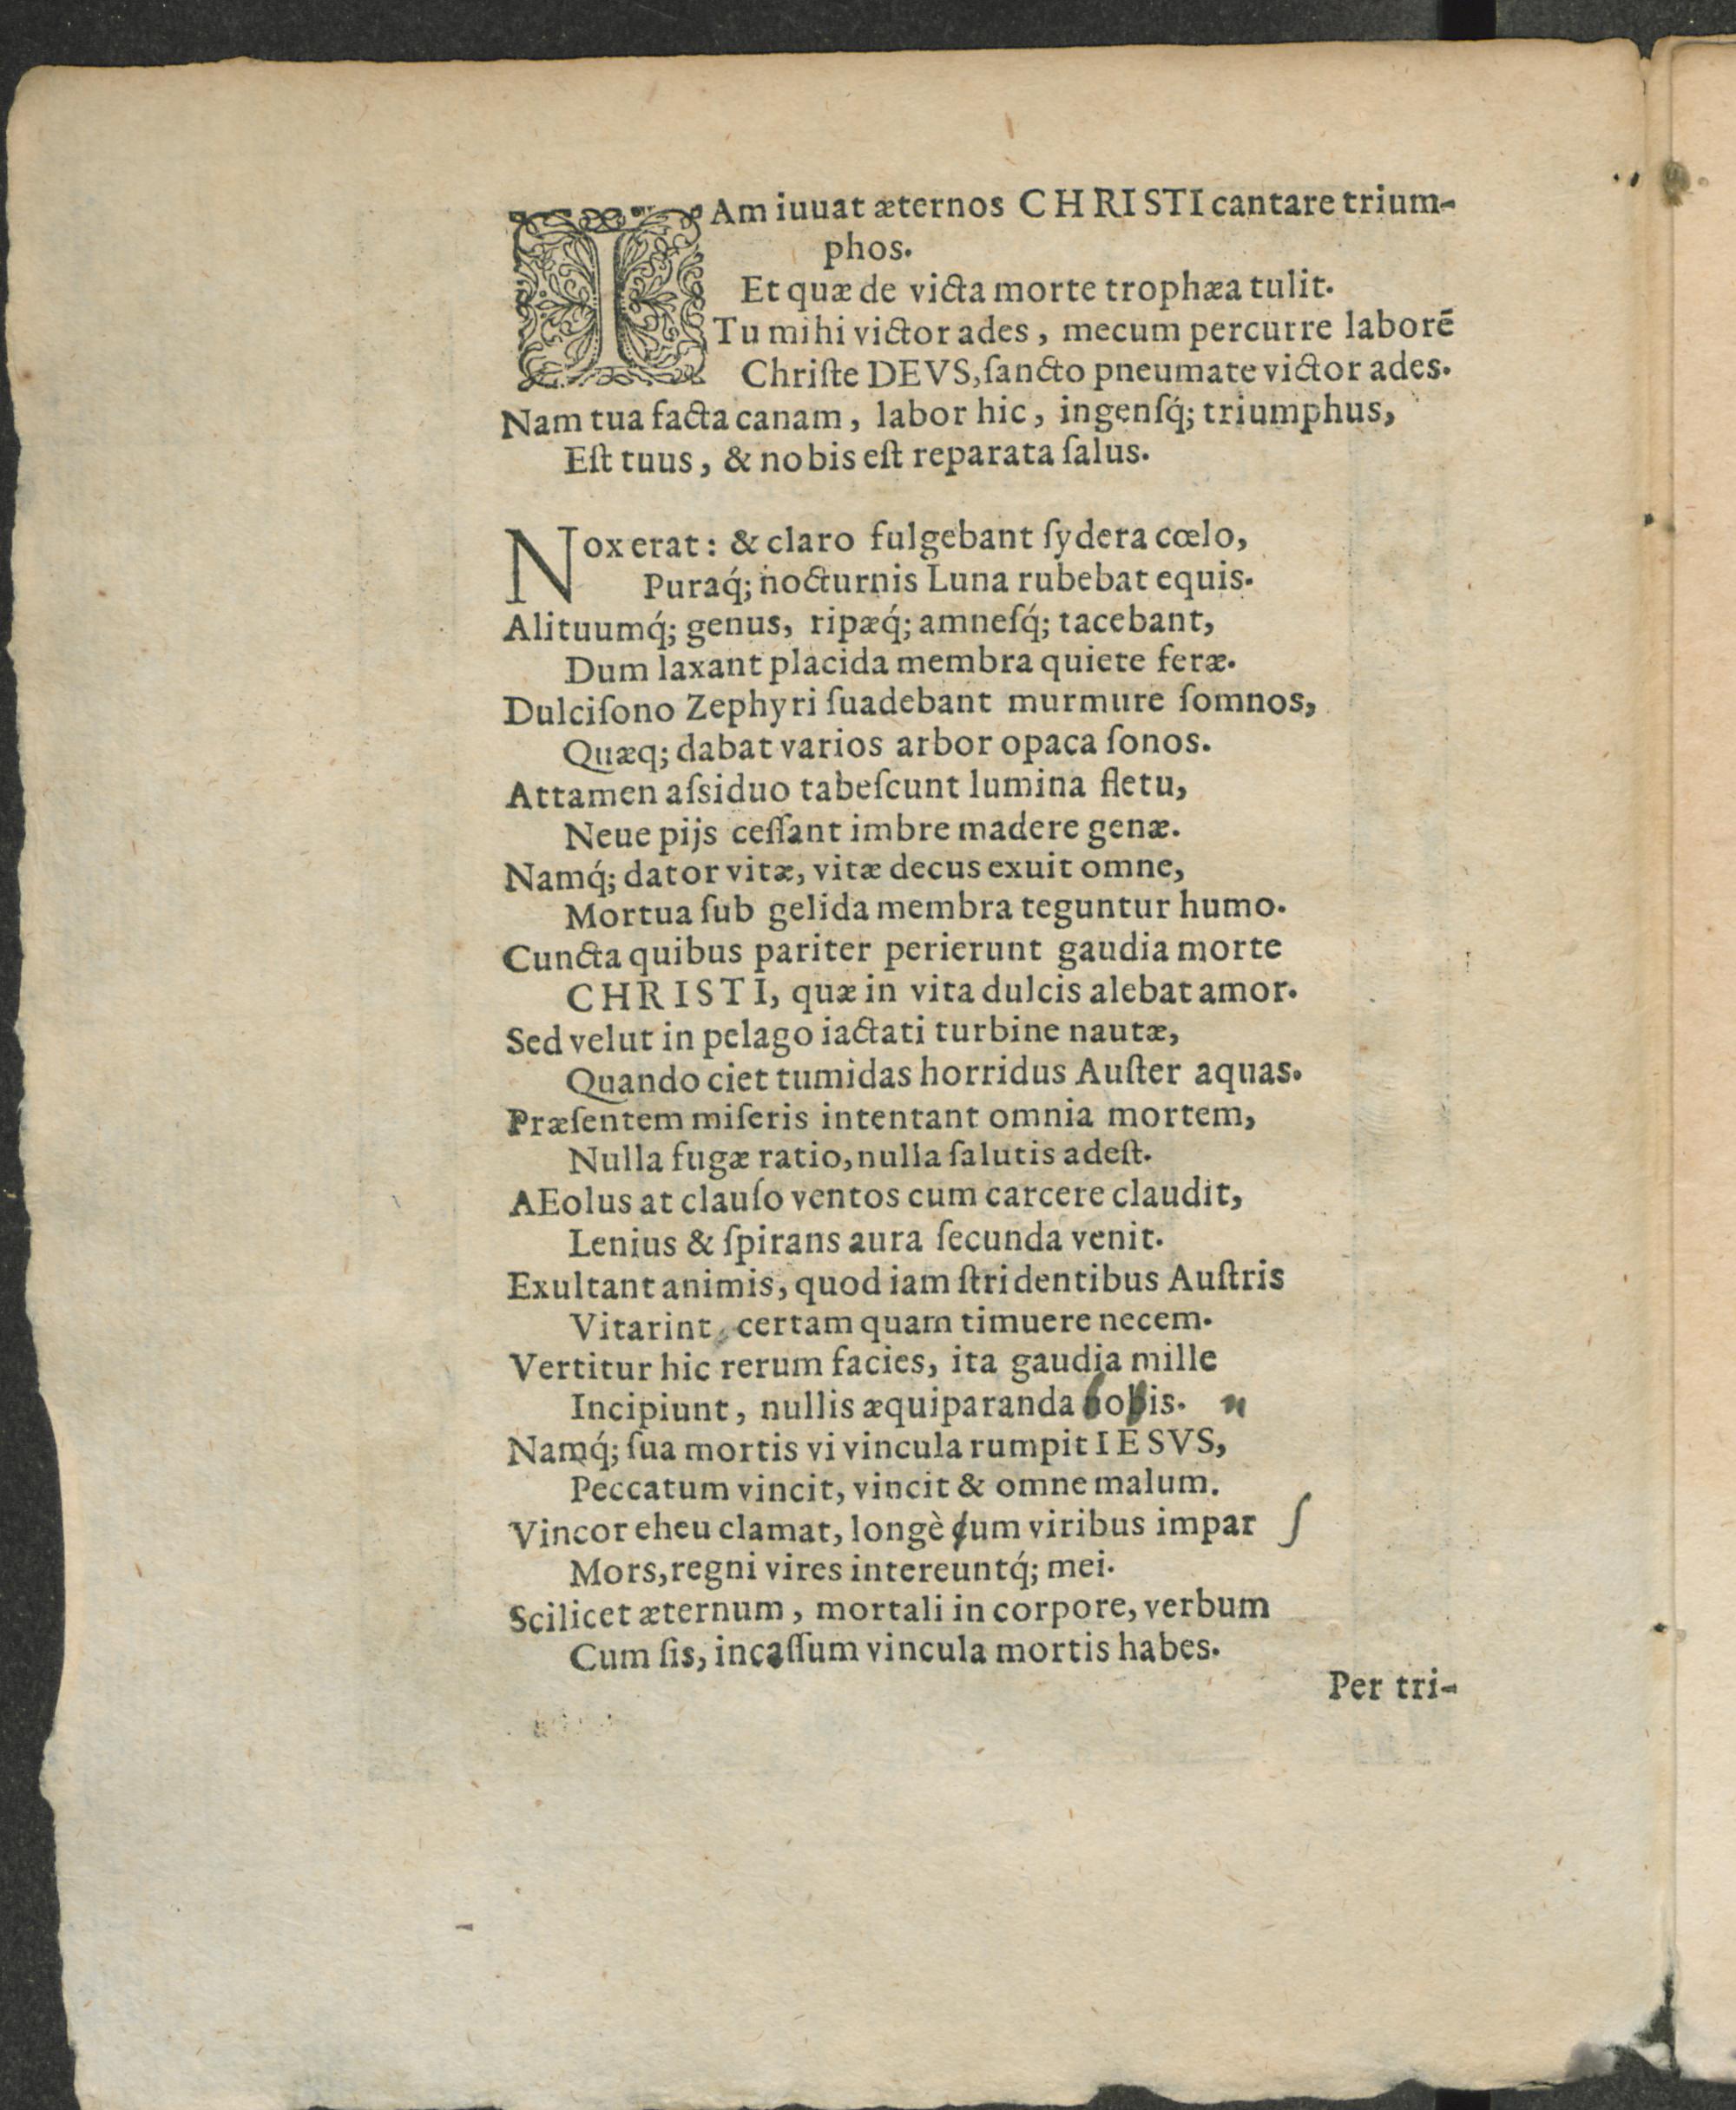 IAm iuuat æternos CHRISTI cantare trium-
phos.
Et quæ de victa morte trophæa tulit.
Tu mihi victor ades, mecum percurre laborē
Chriſte DEVS, ſancto pneumate victor ades.
Nam tua facta canam, labor hic, ingenſq́; triumphus,
Eſt tuus, & nobis eſt reparata ſalus.
Nox erat: & claro fulgebant ſydera cœlo,
Puraq́; nocturnis Luna rubebat equis.
Alituumq́; genus, ripæq́; amneſq́; tacebant,
Dum laxant placida membra quiete feræ.
Dulciſono Zephyri ſuadebant murmure ſomnos,
Quæq; dabat varios arbor opaca ſonos.
Attamen aſsiduo tabeſcunt lumina fletu,
Neue pijs ceſſant imbre madere genæ.
Namq́; dator vitæ, vitæ decus exuit omne,
Mortua ſub gelida membra teguntur humo.
Cuncta quibus pariter perierunt gaudia morte
CHRISTI, quæ in vita dulcis alebat amor.
Sed velut in pelago iactati turbine nautæ,
Quando ciet tumidas horridus Auſter aquas.
Præſentem miſeris intentant omnia mortem,
Nulla fugæ ratio, nulla ſalutis adeſt.
AEolus at clauſo ventos cum carcere claudit,
Lenius & ſpirans aura ſecunda venit.
Exultant animis, quod iam ſtridentibus Auſtris
Vitarint certam quam timuere necem.
Vertitur hic rerum facies, ita gaudia mille
Incipiunt, nullis æquiparanda bobis. n
Namq́; ſua mortis vi vincula rumpit IESVS,
Peccatum vincit, vincit & omne malum.
Vincor eheu clamat, longè cum viribus impar ſ
Mors, regni vires intereuntq́; mei.
Scilicet æternum, mortali in corpore, verbum
Cum ſis, incaſſum vincula mortis habes.
Per tri-